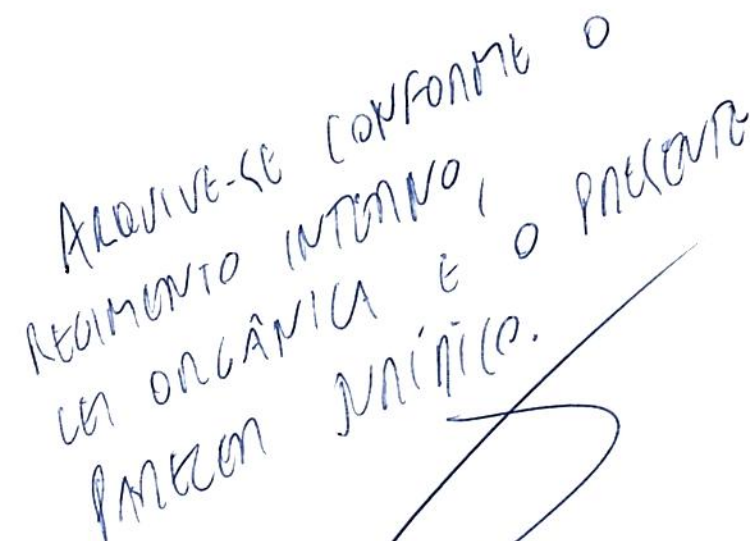 ARQUIVE-SE CONFORME O
REGIMENTO INTERNO,
LEI ORGÂNICA E O PRESENTE
PARECER JURÍDICO.